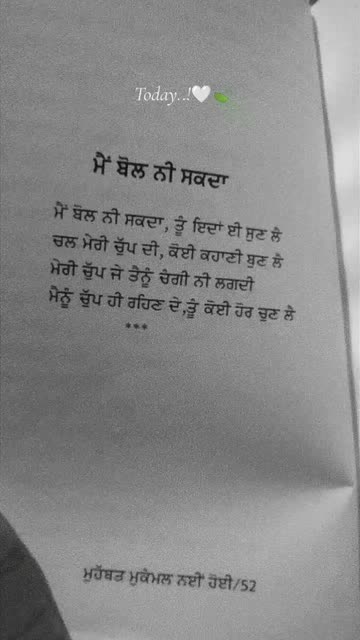 Today..!🤍🍃
ਮੈਂ ਬੋਲ ਨੀ ਸਕਦਾ
ਮੈਂ ਬੋਲ ਨੀ ਸਕਦਾ, ਤੂੰ ਇਦਾਂ ਈ ਸੁਣ ਲੈ
ਚਲ ਮੇਰੀ ਚੁੱਪ ਦੀ, ਕੋਈ ਕਹਾਣੀ ਬੁਣ ਲੈ
ਮੇਰੀ ਚੁੱਪ ਜੇ ਤੈਨੂੰ ਚੰਗੀ ਨੀ ਲਗਦੀ
ਮੈਨੂੰ ਚੁੱਪ ਹੀ ਰਹਿਣ ਦੇ,ਤੂੰ ਕੋਈ ਹੋਰ ਚੁਣ ਲੈ
***
ਮੁਹੱਬਤ ਮੁਕੰਮਲ ਨਈਂ ਹੋਈ/52